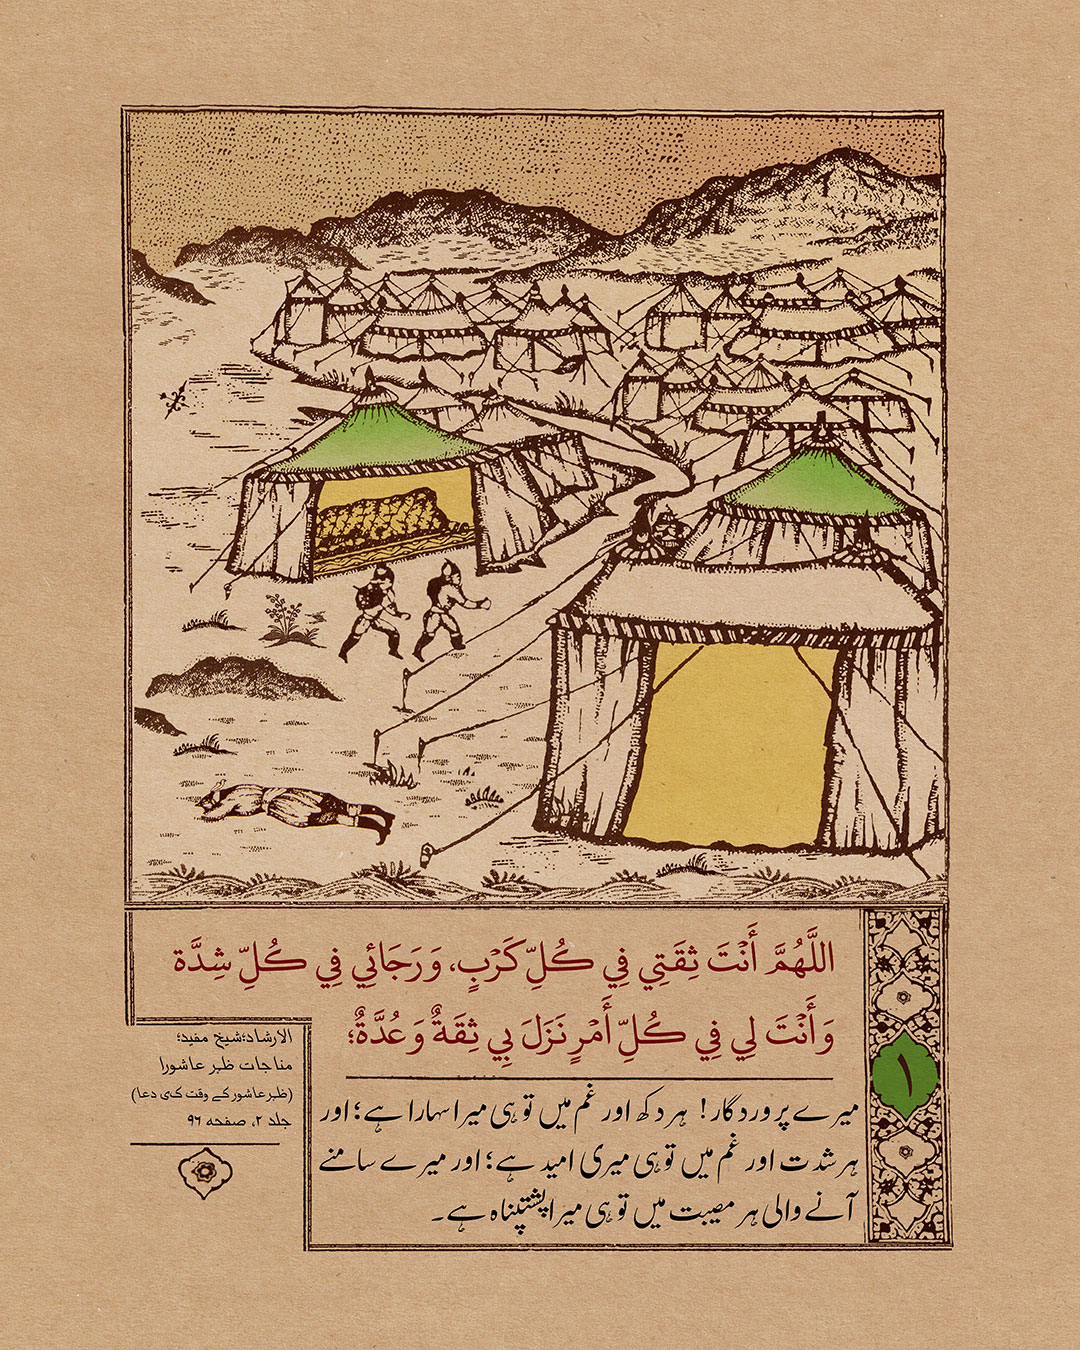 اللَّهُمَّ أَنْتَ ثِقَتِي فِي كُلِّ كَرْبٍ، وَرَجَائِي فِي كُلِّ شِدَّة
وَأَنْتَ لِي فِي كُلِّ أَمْرٍ نَزَلَ بِي ثِقَةٌ وَعُدَّةٌ؛
۱
میرے پروردگار! ہر دکھ اور غم میں تو ہی میرا سہارا ہے؛ اور
ہر شدت اور غم میں تو ہی میری امید ہے؛ اور میرے سامنے
آنے والی ہر مصیبت میں تو ہی میرا پشتپناہ ہے۔
الارشاد؛شیخ مفید؛
مناجات ظہر عاشورا
(ظہر عاشور کے وقت کی دعا)
جلد ۲، صفحه ۹۶